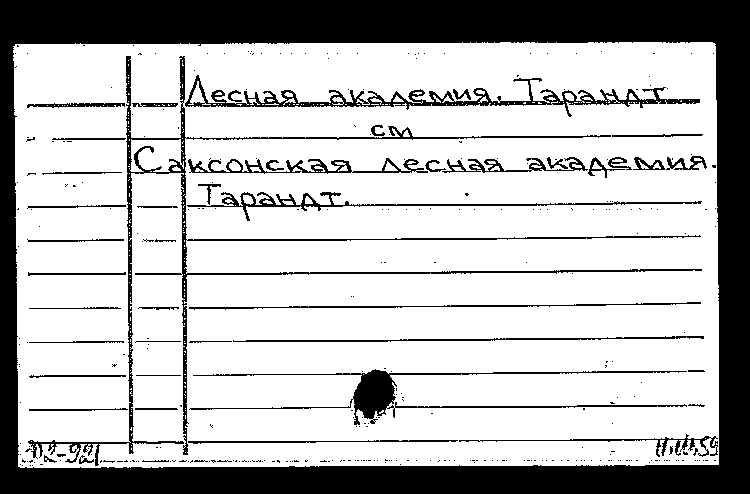 Лесная академия. Тарандт
см
Саксонская лесная академия.
Тарандт.